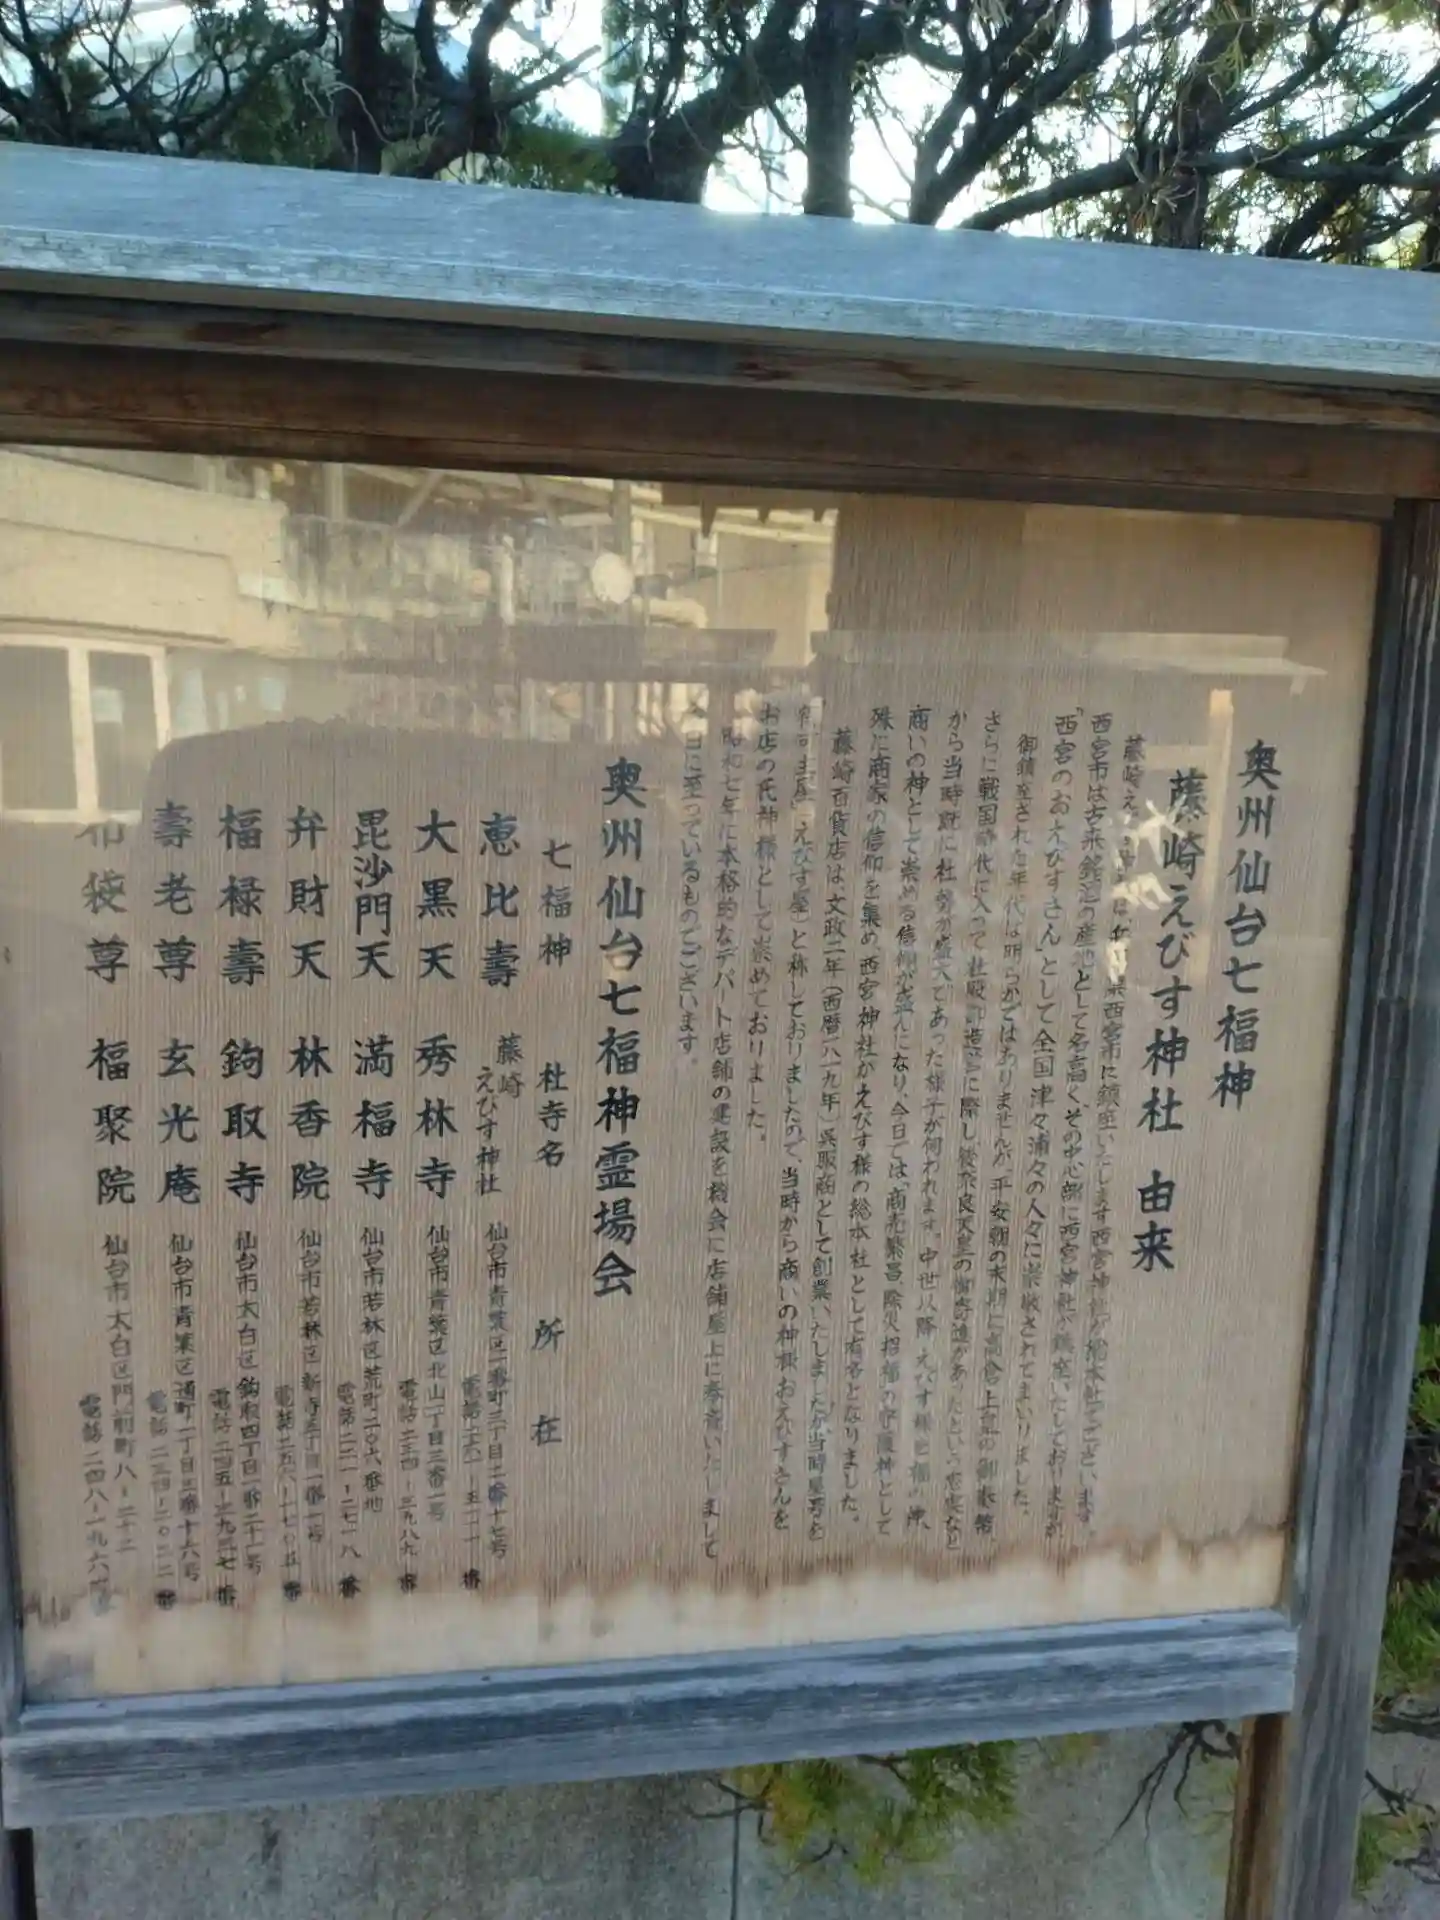 奥州仙台七福神
藤崎えびす神社 由来
西宮市に鎮座いたします西宮神社が総本社でございます。
西宮市は古来銘酒の産地として名高く、その中心部に西宮神社が鎮座いたしておりますが、
「西宮の、おえびすさん」として全国津々浦々の人々に崇敬されてまいりました。
御鎮座された年代は明らかではありませんが、平安朝の末期に高倉上皇の御幣
さらに戦国時代に入って社殿御造営に際し、後奈良天皇の御寄進があったという史実など
から当時既に社勢が盛大であった様子が伺われます。中世以降、えびす様を福の神、
商いの神として崇める信仰が盛んになり、今日では、商売繁昌、除災招福の守護神として
殊に商家の信仰を集め、西宮神社がえびす様の総本社として有名となりました。
藤崎百貨店は、文政二年(西暦一八一九年)呉服商として創業いたしましたが、当時屋号を
「えびす屋」と称しておりましたので、当時から商いの神様おえびすさんを
お店の氏神様として崇めておりました。
昭和七年に本格的なデパート店舗の建設を機会に店舗屋上に奉斎いたしまして
今日に至っているものでございます。
奥州仙台七福神霊場会
七福神 社寺名 所在
恵比壽 藤崎えびす神社 仙台市青葉区一番町三丁目二番十七号
電話
大黒天 秀林寺 仙台市青葉区北山一丁目三番一号
電話二三四-三九八九番
毘沙門天 満福寺 仙台市若林区荒町二〇六番地
電話二二一-二七一八番
弁財天 林香院 仙台市若林区新寺五丁目一番一号
電話二五六-一七〇五番
福禄壽 鉤取寺 仙台市太白区鉤取四丁目一番二十一号
電話二四五-二九三七番
壽老尊 玄光庵 仙台市青葉区通町一丁目三番十六号
電話二三四-二〇二二番
布袋尊 福聚院 仙台市太白区門前町八-二十二
電話二四八-一九六